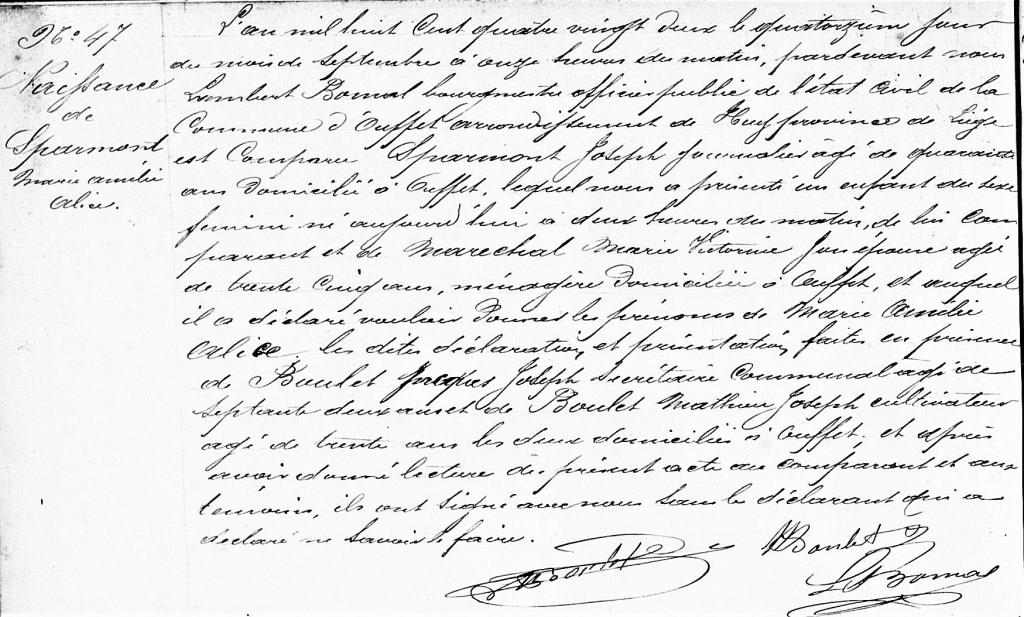 No. 47
Naissance
de
Sparmont
marie amélie
alice.
L'an mil huit cent quatre vingt deux le quatorzième jour
du mois de Septembre à onze heures du matin, pardevant nous
Lambert Bomal bourgmestre officier public de l'état civil de la
Commune d'Ouffet arrondissement de Huy province de Liège
est comparu Sparmont Joseph Journalier âgé de quarante
ans domicilié à Ouffet, lequel nous a présenté un enfant du sexe
féminin né aujourd'hui à deux heures du matin, de lui com
parant et de Marechal Marie Victorine son épouse agée
de trente cinq ans, ménagère domiciliée à Ouffet, et auquel
il a déclaré vouloir donner les prénoms de Marie amélie
alice. les dites déclaration et présentation faites en présence
de Boulet Jacques Joseph secrétaire communal agé de
septante deux ans et de Boulet Mathieu Joseph cultivateur
agé de trente ans les deux domiciliés à Ouffet. et après
avoir donné lecture du présent acte au comparant et aux
témoins, ils ont signé avec nous sauf le déclarant qui a
déclaré ne savoir le faire.
Boulet
Boulet
L Bomal